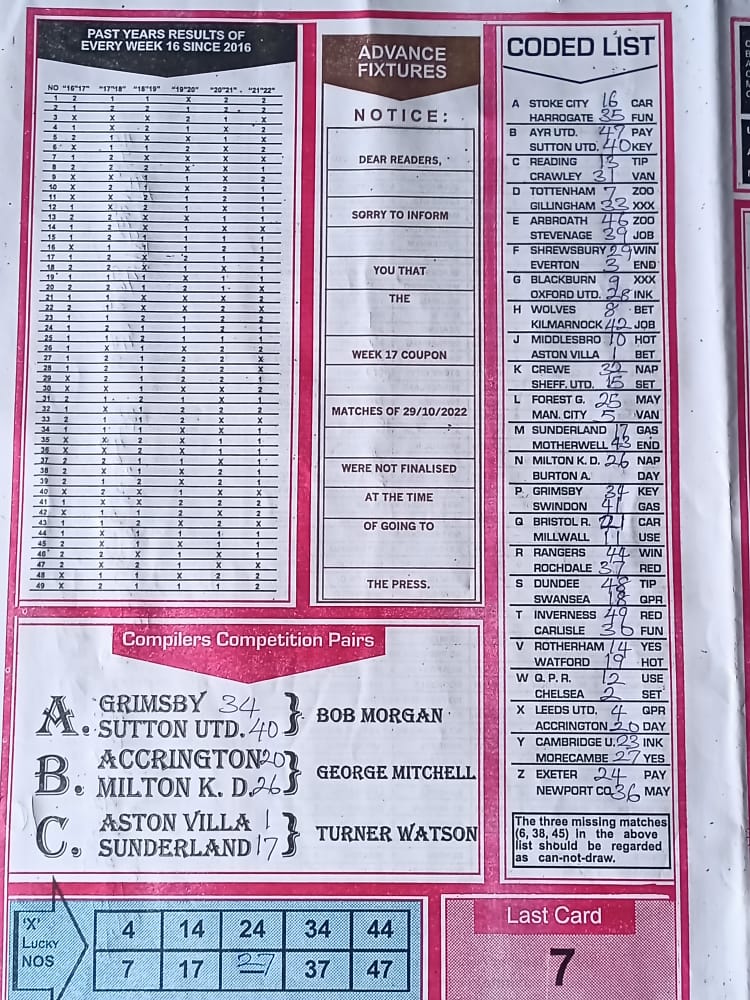 PAST YEARS RESULTS OF
EVERY WEEK 16 SINCE 2016
NO "16"17" "17"18" "18"19" "19"20" "20"21" "21"22"
1 2 1 1 X 2 2
22 2 X 1 X X 2
23 1 1 2 1 2 2
24 1 2 1 1 2 1
27 1 2 1 2 2 X
29 X 2 1 2 2 1
32 1 X 1 2 2 2
35 X X 2 X 1 1
37 2 2 1 1 X 1
38 2 X 1 X 2 1
39 2 1 2 X 2 1
40 X 2 X 1 X X
41 X X X 2 2 2
42 X 1 1 X 2 2
43 1 1 2 X 2 X
44 1 1 1 X 1 1
45 2 X X 1 1 1
46 2 2 X 1 X 1
47 2 X 2 1 X X
48 X 1 1 X 2 2
49 X 2 1 1 1 2
ADVANCE
FIXTURES
NOTICE:
DEAR READERS,
SORRY TO INFORM
YOU THAT
THE
WEEK 17 COUPON
MATCHES OF 29/10/2022
WERE NOT FINALISED
AT THE TIME
OF GOING TO
THE PRESS.
CODED LIST
A STOKE CITY 16 CAR
HARROGATE 35 FUN
B AYR UTD. 47 PAY
SUTTON UTD. 40 KEY
C READING 13 TIP
CRAWLEY 31 VAN
D TOTTENHAM 7 ZOO
GILLINGHAM 33 XXX
E ARBROATH 46 ZOO
STEVENAGE 39 JOB
F SHREWSBURY 29 WIN
EVERTON 3 END
G BLACKBURN 9 XXX
OXFORD UTD. 28 INK
H WOLVES 8 BET
KILMARNOCK 42 JOB
J MIDDLESBRO 10 HOT
ASTON VILLA 1 BET
K CREWE 32 NAP
SHEFF. UTD. 15 SET
L FOREST G. 25 MAY
MAN. CITY 5 VAN
M SUNDERLAND 17 GAS
MOTHERWELL 43 END
N MILTON K. D. 26 NAP
BURTON A. DAY
P GRIMSBY 34 KEY
SWINDON 41 GAS
Q BRISTOL R. 21 CAR
MILLWALL 11 USE
R RANGERS 44 WIN
ROCHDALE 37 RED
S DUNDEE 48 TIP
SWANSEA 18 QPR
T INVERNESS 49 RED
CARLISLE 30 FUN
V ROTHERHAM 14 YES
WATFORD 19 HOT
W Q. P. R. 12 USE
CHELSEA 2 SET
X LEEDS UTD. 4 QPR
ACCRINGTON 20 DAY
Y CAMBRIDGE U. 23 INK
MORECAMBE 27 YES
Z EXETER 24 PAY
NEWPORT CO. 36 MAY
The three missing matches
(6, 38, 45) in the above
list should be regarded
as can-not-draw.
Compilers Competition Pairs
A. GRIMSBY 34
SUTTON UTD. 40
BOB MORGAN
B. ACCRINGTON 20
MILTON K. D. 26
GEORGE MITCHELL
C. ASTON VILLA 1
SUNDERLAND 17
TURNER WATSON
'X'
LUCKY
NOS
4 14 24 34 44
7 17 27 37 47
Last Card
7